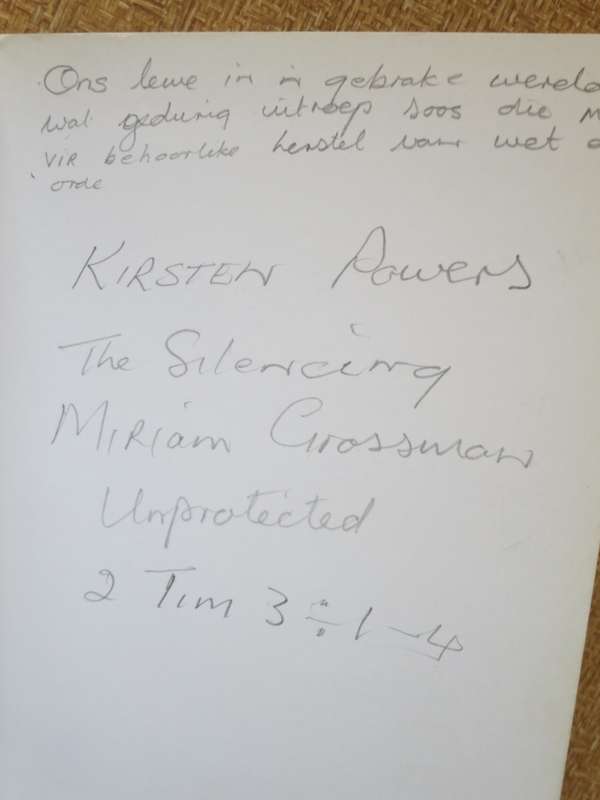 Ons lewe in 'n gebroke wereld
wat gedurig uitroep soos die
vir behoorlike herstel van wet
orde
KIRSTEN Powers
The Silencing
MIRIAM Grossman
Unprotected
2 Tim 3÷1-4